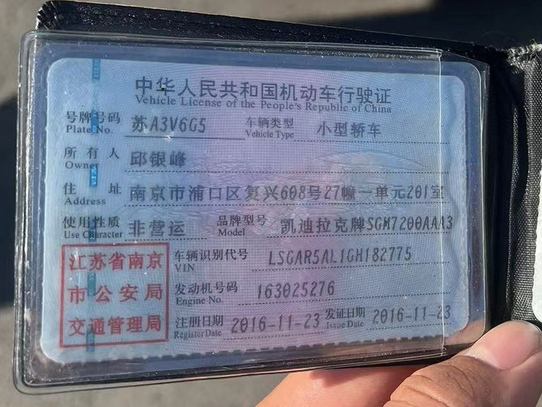 中华人民共和国机动车行驶证
Vehicle License of the People's Republic of China
号牌号码 苏A3V6G5 车辆类型 小型轿车
Plate No. Vehicle Type
所有人 邱银峰
Owner
住址 南京市浦口区复兴608号27幢一单元201室
Address
使用性质 非营运 品牌型号 凯迪拉克牌SGM7200AAA3
Use Character Model
江苏省南京
市公安局
交通管理局
车辆识别代号 LSGAR5AL1GH182775
VIN
发动机号码 163025276
Engine No.
注册日期 2016-11-23 发证日期 2016-11-23
Register Date Issue Date